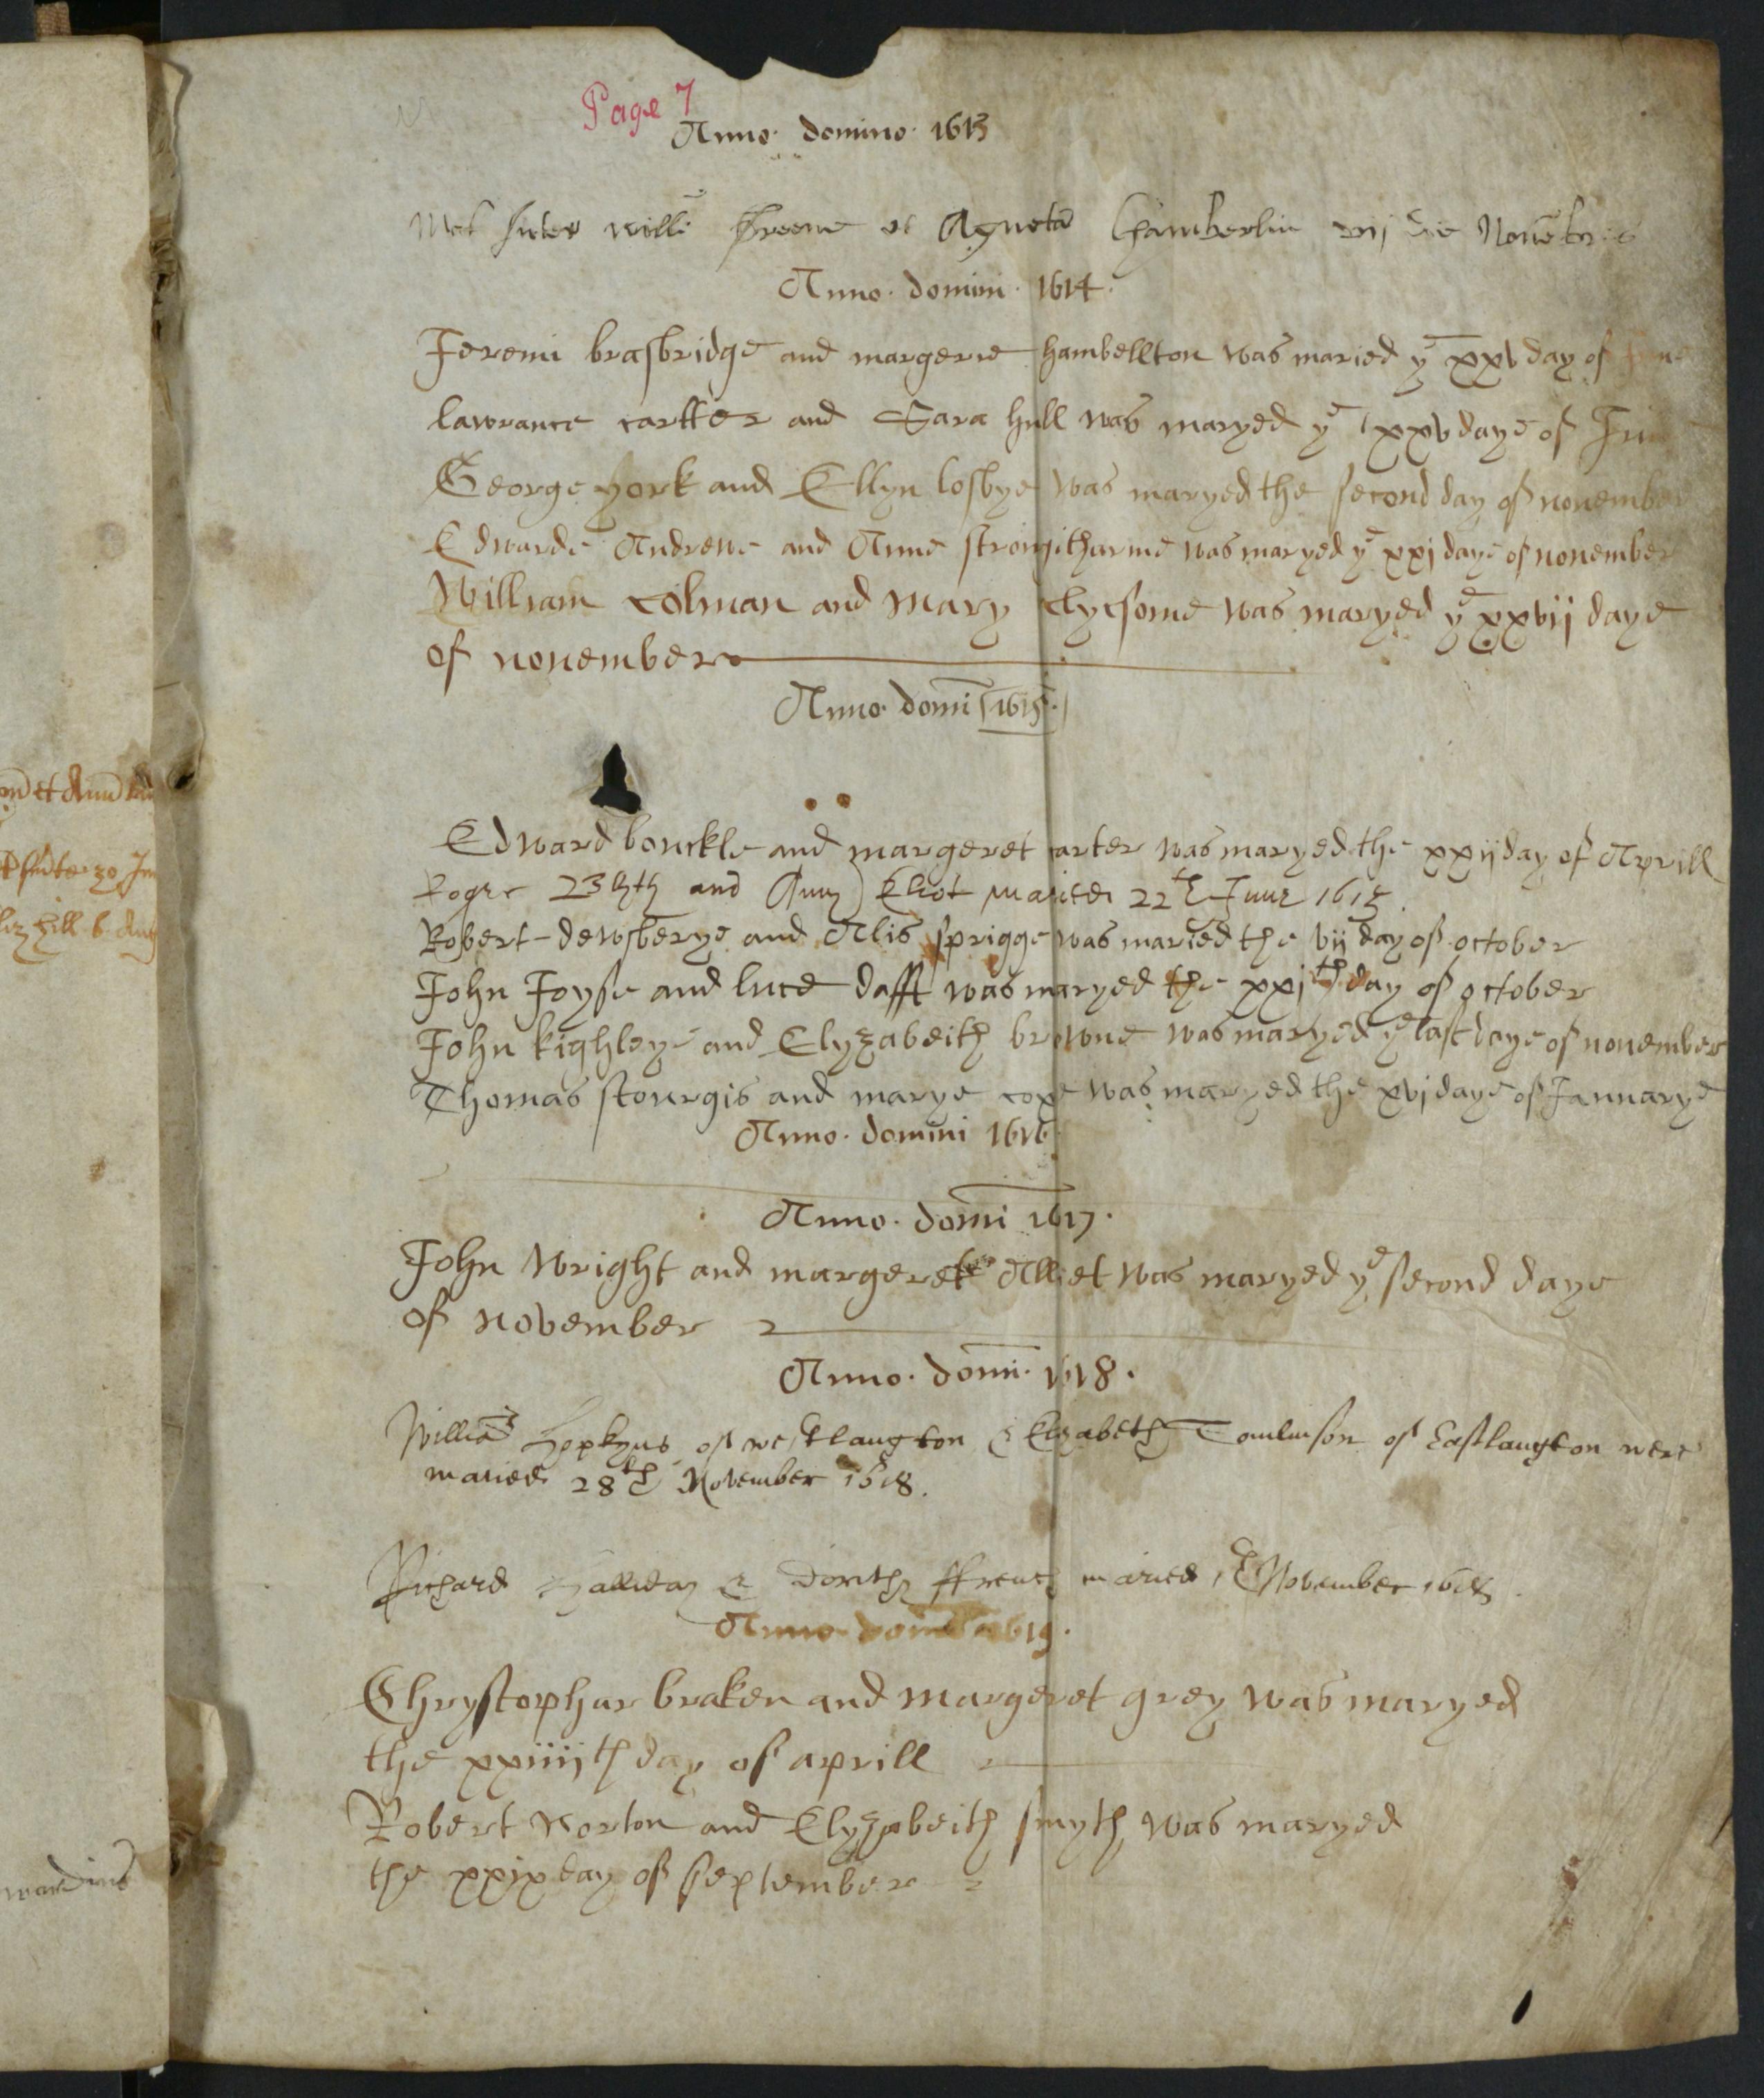 Page 7
Anno domino 1613
Mat inter Willi Greene et Agneta Chamberlin vij die Novebris
Anno domini 1614
Jeremi brasbridge and margerie hambellton was maried ye xxv day of June
lawrance cartter and Sara hull was maryed ye xxv daye of Jun
George york and Ellyn losbye was maryed the second day of nouember
Edwarde Andrewe and Anne strongitharme was maryed ye xxj daye of nouember
William colman and Mary clycsome was maryed ye xxvij daye
of nouember
Anno domi 1615
Edward bouckle and margeret carter was maryed the xxij day of Aprill
Roger and Amy Eliot maried 22th June 1615
Robert dewsberye and Alis sprigge was maried the vij day of october
John Joyse and luce dafft was maryed the xxjth day of october
John kighleye and Elyzabeith browne was maryed ye last daye of nouember
Thomas stourgis and marye cope was maryed the xvj daye of Januarye
Anno domini 1616
Anno domi 1617
John Wright and margeret Alliet was maryed ye second daye
of november
Anno domi 1618
Willia Hopkyns of westlangton & Elizabeth Tomlinson of Eastlangton were
maried 28th November 1618.
Richard Halliday & Dorithy ffrench maried November 1618
Anno domi 1619
Chrystophar braken and Margeret grey was maryed
the xxiiijth day of aprill
Robert Norton and Elyzabeith smyth was maryed
the xxix day of september